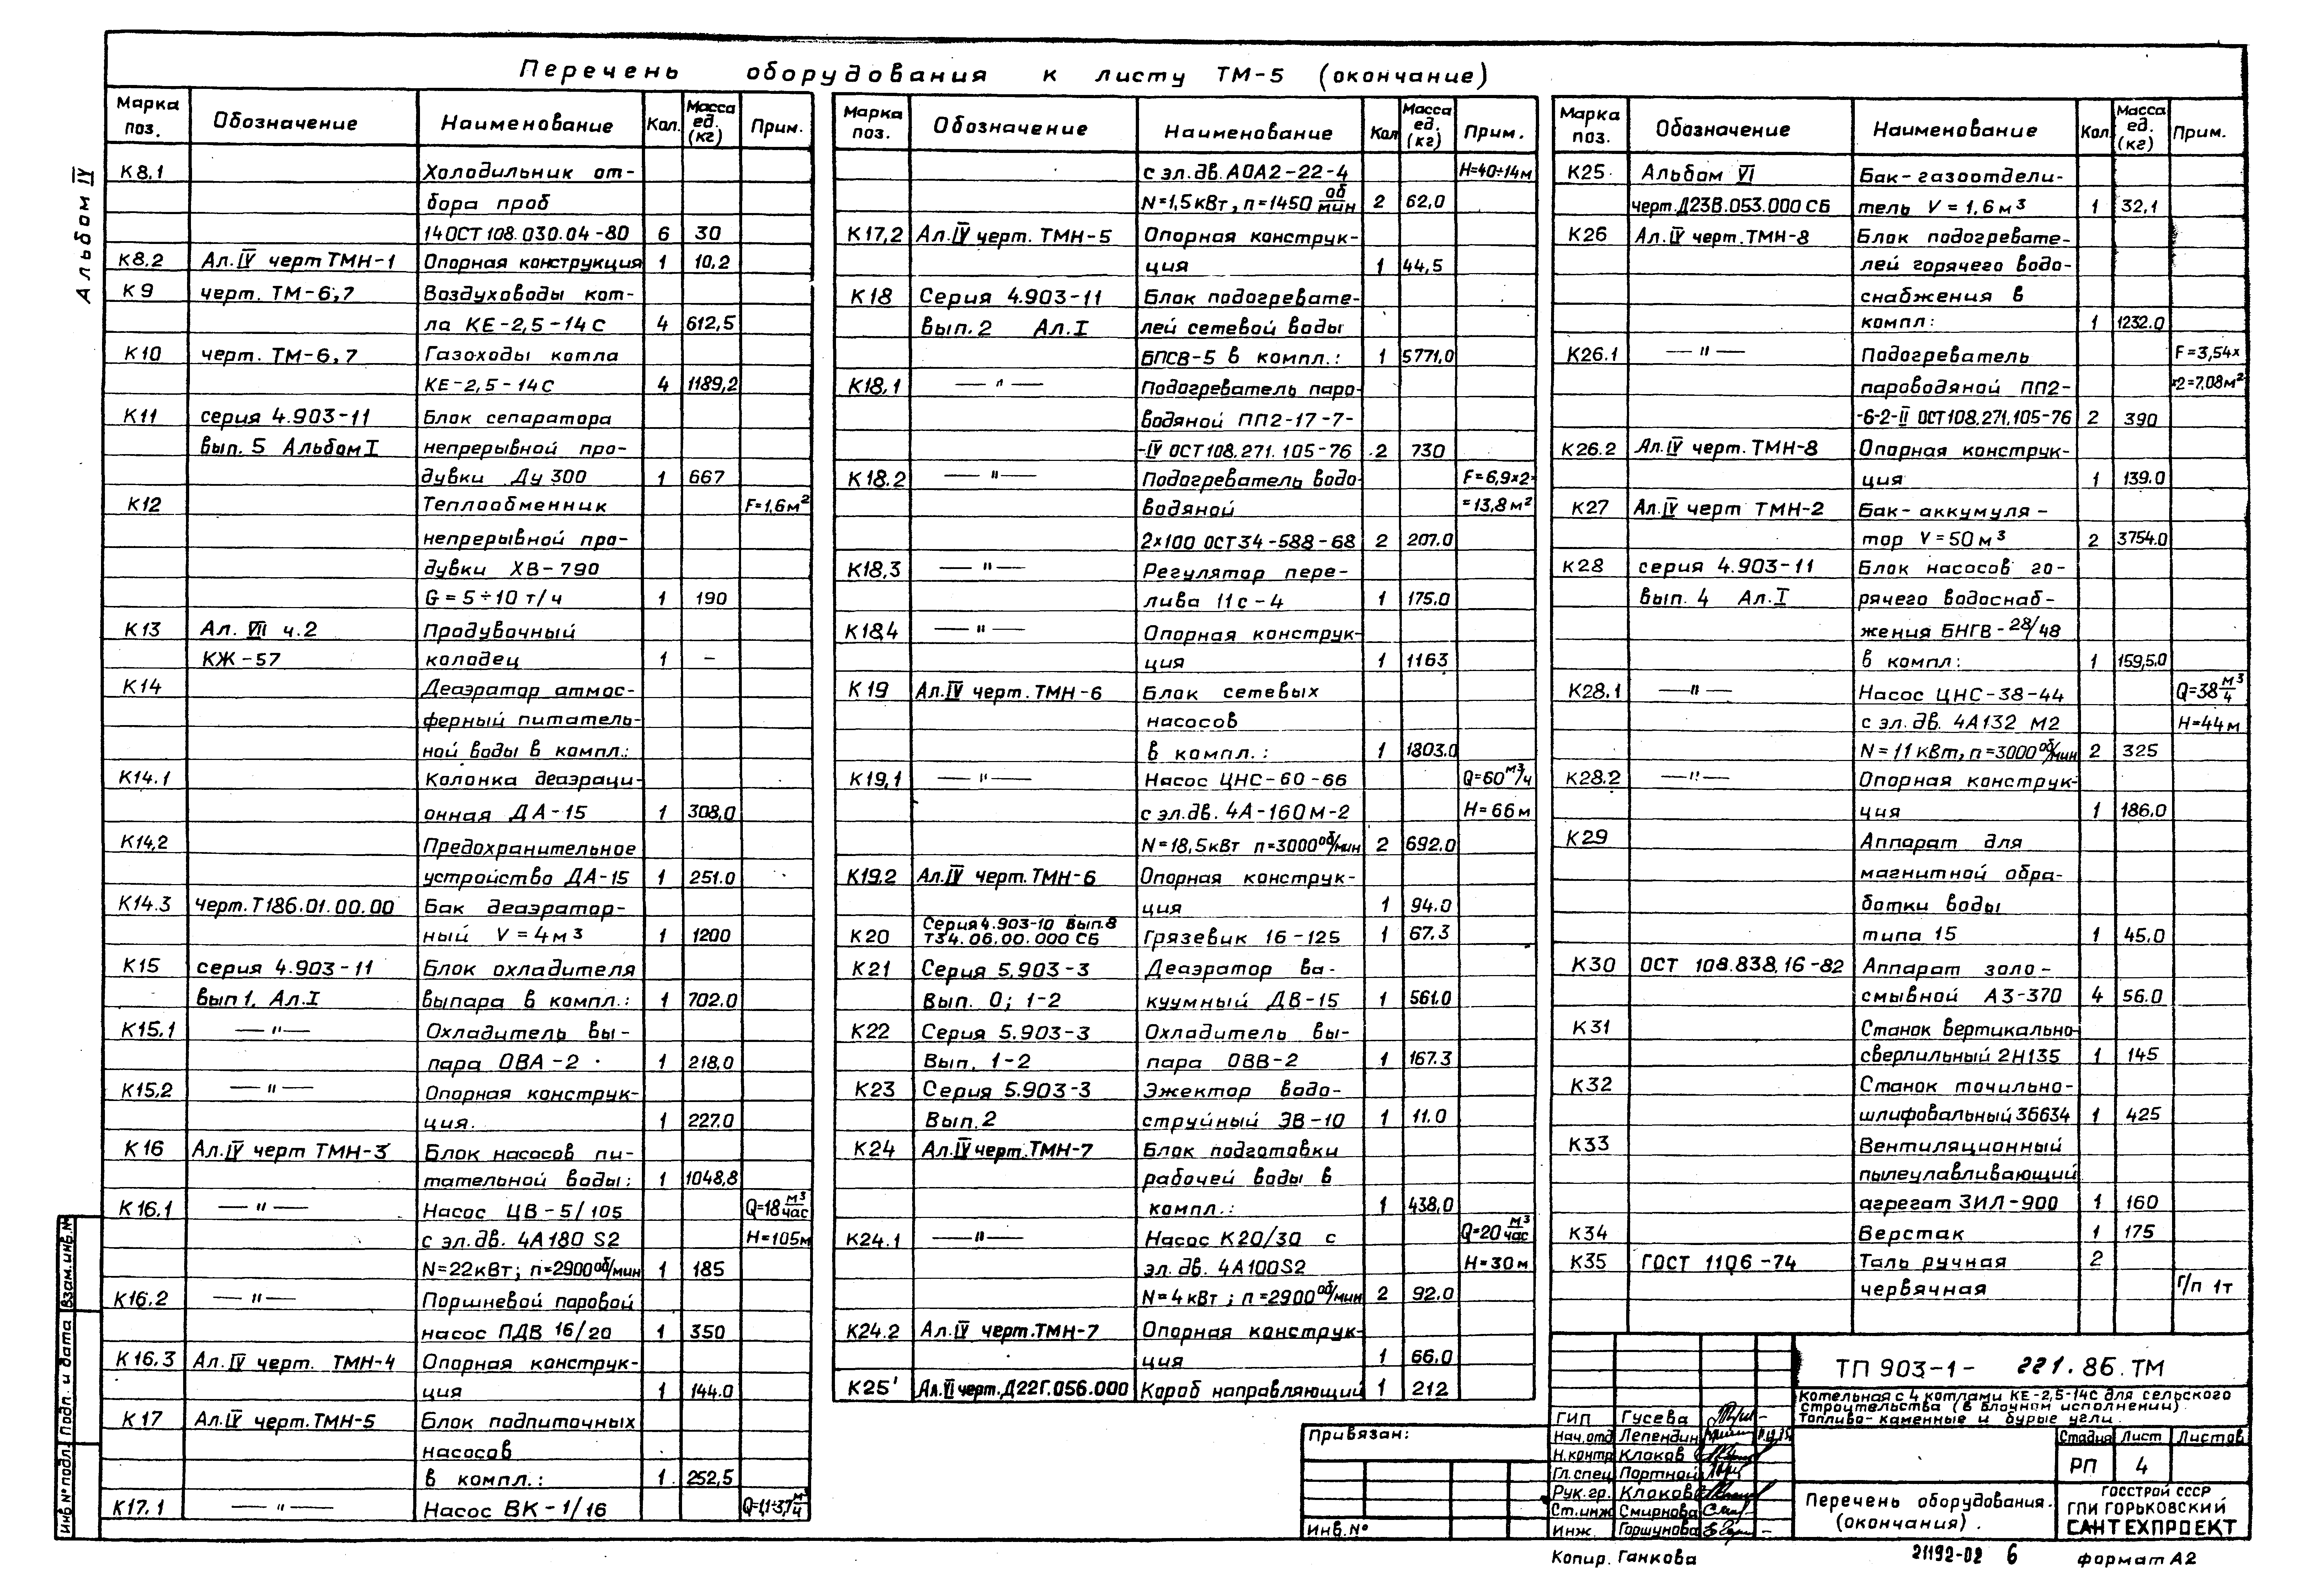 Перечень оборудования к листу ТМ-5 (окончание)
Альбом IV
Марка поз. Обозначение Наименование Кол. Масса ед. (кг) Прим.
К8,1 Холодильник от-
бора проб
14ОСТ108.030.04-80 6 30
К8,2 Ал.IV черт ТМН-1 Опорная конструкция 1 10,2
К9 черт. ТМ-6,7 Воздуховоды кот-
ла КЕ-2,5-14С 4 612,5
К10 черт. ТМ-6,7 Газоходы котла
КЕ-2,5-14С 4 1189,2
К11 серия 4.903-11 Блок сепаратора
вып. 5 Альбом I непрерывной про-
дувки Ду 300 1 667
К12 Теплообменник F=1,6м²
непрерывной про-
дувки ХВ-790
G=5÷10 т/ч 1 190
К13 Ал. VII ч.2 Продувочный
КЖ-57 колодец 1 –
К14 Деаэратор атмос-
ферный питатель-
ной воды в компл.:
К14.1 Колонка деаэраци-
онная ДА-15 1 308,0
К14,2 Предохранительное
устройство ДА-15 1 251.0
К14.3 черт.Т186.01.00.00 Бак деаэратор-
ный V=4м³ 1 1200
К15 серия 4.903-11 Блок охладителя
вып 1. Ал.I выпара в компл.: 1 702.0
К15.1 —"— Охладитель вы-
пара ОВА-2 1 218,0
К15,2 —"— Опорная конструк-
ция. 1 227.0
К16 Ал.IV черт ТМН-3 Блок насосов пи-
тательной воды: 1 1048,8
К16.1 —"— Насос ЦВ-5/105 Q=18 м³/час
с эл.дв. 4А180 S2 Н=105м
N=22кВт; п=2900об/мин 1 185
К16.2 —"— Поршневой паровой
насос ПДВ 16/20 1 350
К16,3 Ал.IV черт. ТМН-4 Опорная конструк-
ция 1 144.0
К17 Ал.IV черт.ТМН-5 Блок подпиточных
насосов
в компл.: 1 252,5
К17.1 —"— Насос ВК-1/16 Q=1,1÷3,7 м³/ч
Марка поз. Обозначение Наименование Кол Масса ед. (кг) Прим.
с эл.дв. АОА2-22-4 Н=40÷14м
N=1,5кВт, п=1450 об/мин 2 62,0
К17,2 Ал.IV черт. ТМН-5 Опорная конструк-
ция 1 44,5
К18 Серия 4.903-11 Блок подогревате-
вып.2 Ал.I лей сетевой воды
БПСВ-5 в компл.: 1 5771,0
К18,1 —"— Подогреватель паро-
водяной ПП2-17-7-
-IV ОСТ108.271.105-76 2 730
К18.2 —"— Подогреватель водо- F=6,9×2=
водяной =13,8м²
2×100 ОСТ34-588-68 2 207.0
К18,3 —"— Регулятор пере-
лива 11с-4 1 175.0
К18,4 —"— Опорная конструк-
ция 1 1163
К19 Ал.IV черт.ТМН-6 Блок сетевых
насосов
в компл.: 1 1803.0
К19,1 —"— Насос ЦНС-60-66 Q=60м³/ч
с эл.дв. 4А-160М-2 Н=66м
N=18,5кВт п=3000об/мин 2 692.0
К19.2 Ал.IV черт.ТМН-6 Опорная конструк-
ция 1 94.0
Серия4.903-10 Вып.8
К20 Т34.06.00.000 СБ Грязевик 16-125 1 67.3
К21 Серия 5.903-3 Деаэратор ва-
Вып. 0; 1-2 куумный ДВ-15 1 561.0
К22 Серия 5.903-3 Охладитель вы-
Вып. 1-2 пара ОВВ-2 1 167.3
К23 Серия 5.903-3 Эжектор водо-
Вып.2 струйный ЭВ-10 1 11.0
К24 Ал.IV черт.ТМН-7 Блок подготовки
рабочей воды в
компл.: 1 438,0
К24.1 —"— Насос К20/30 с Q=20 м³/час
эл.дв. 4А100S2 Н=30м
N=4кВт; п=2900об/мин 2 92.0
К24.2 Ал.IV черт.ТМН-7 Опорная конструк-
ция 1 66.0
К25' Ал.VI черт.Д22Г.056.000 Короб направляющий 1 212
Марка поз. Обозначение Наименование Кол. Масса ед. (кг) Прим.
К25 Альбом VI Бак-газоотдели-
черт.Д23В.053.000 СБ тель V=1,6м³ 1 32,1
К26 Ал.IV черт.ТМН-8 Блок подогревате-
лей горячего водо-
снабжения в
компл: 1 1232.0
К26.1 —"— Подогреватель F=3,54×
пароводяной ПП2- ×2=7,08м²
-6-2-II ОСТ108.271.105-76 2 390
К26.2 Ал.IV черт.ТМН-8 Опорная конструк-
ция 1 139.0
К27 Ал.IV черт ТМН-2 Бак-аккумуля-
тор V=50м³ 2 3754.0
К28 серия 4.903-11 Блок насосов го-
Вып. 4 Ал.I рячего водоснаб-
жения БНГВ-28/48
в компл: 1 159,5.0
К28.1 —"— Насос ЦНС-38-44 Q=38 м³/ч
с эл.дв. 4А132 М2 Н=44м
N=11кВт, п=3000об/мин 2 325
К28.2 —"— Опорная конструк-
ция 1 186.0
К29 Аппарат для
магнитной обра-
ботки воды
типа 15 1 45.0
К30 ОСТ 108.838.16-82 Аппарат золо-
смывной АЗ-370 4 56.0
К31 Станок вертикально-
сверлильный 2Н135 1 145
К32 Станок точильно-
шлифовальный 3Б634 1 425
К33 Вентиляционный
пылеулавливающий
агрегат ЗИЛ-900 1 160
К34 Верстак 1 175
К35 ГОСТ 1106-74 Таль ручная 2
червячная Г/п 1т
ТП 903-1- 221.86.ТМ
Котельная с 4 котлами КЕ-2,5-14С для сельского
строительства (в блочном исполнении).
Топливо-каменные и бурые угли.
ГИП Гусева
Нач.отд Лепендин
Н.контр Клоков
Гл.спец Портной
Рук.гр. Клокова
Ст.инж Смирнова
Инж. Горшунова
Привязан:
Инв.№
Стадия Лист Листов
РП 4
Перечень оборудования.
(окончания).
ГОССТРОЙ СССР
ГПИ ГОРЬКОВСКИЙ
САНТЕХПРОЕКТ
Копир. Ганкова 21192-02 6 формат А2
Инв.№подл. Подп. и дата Взам.инв.№